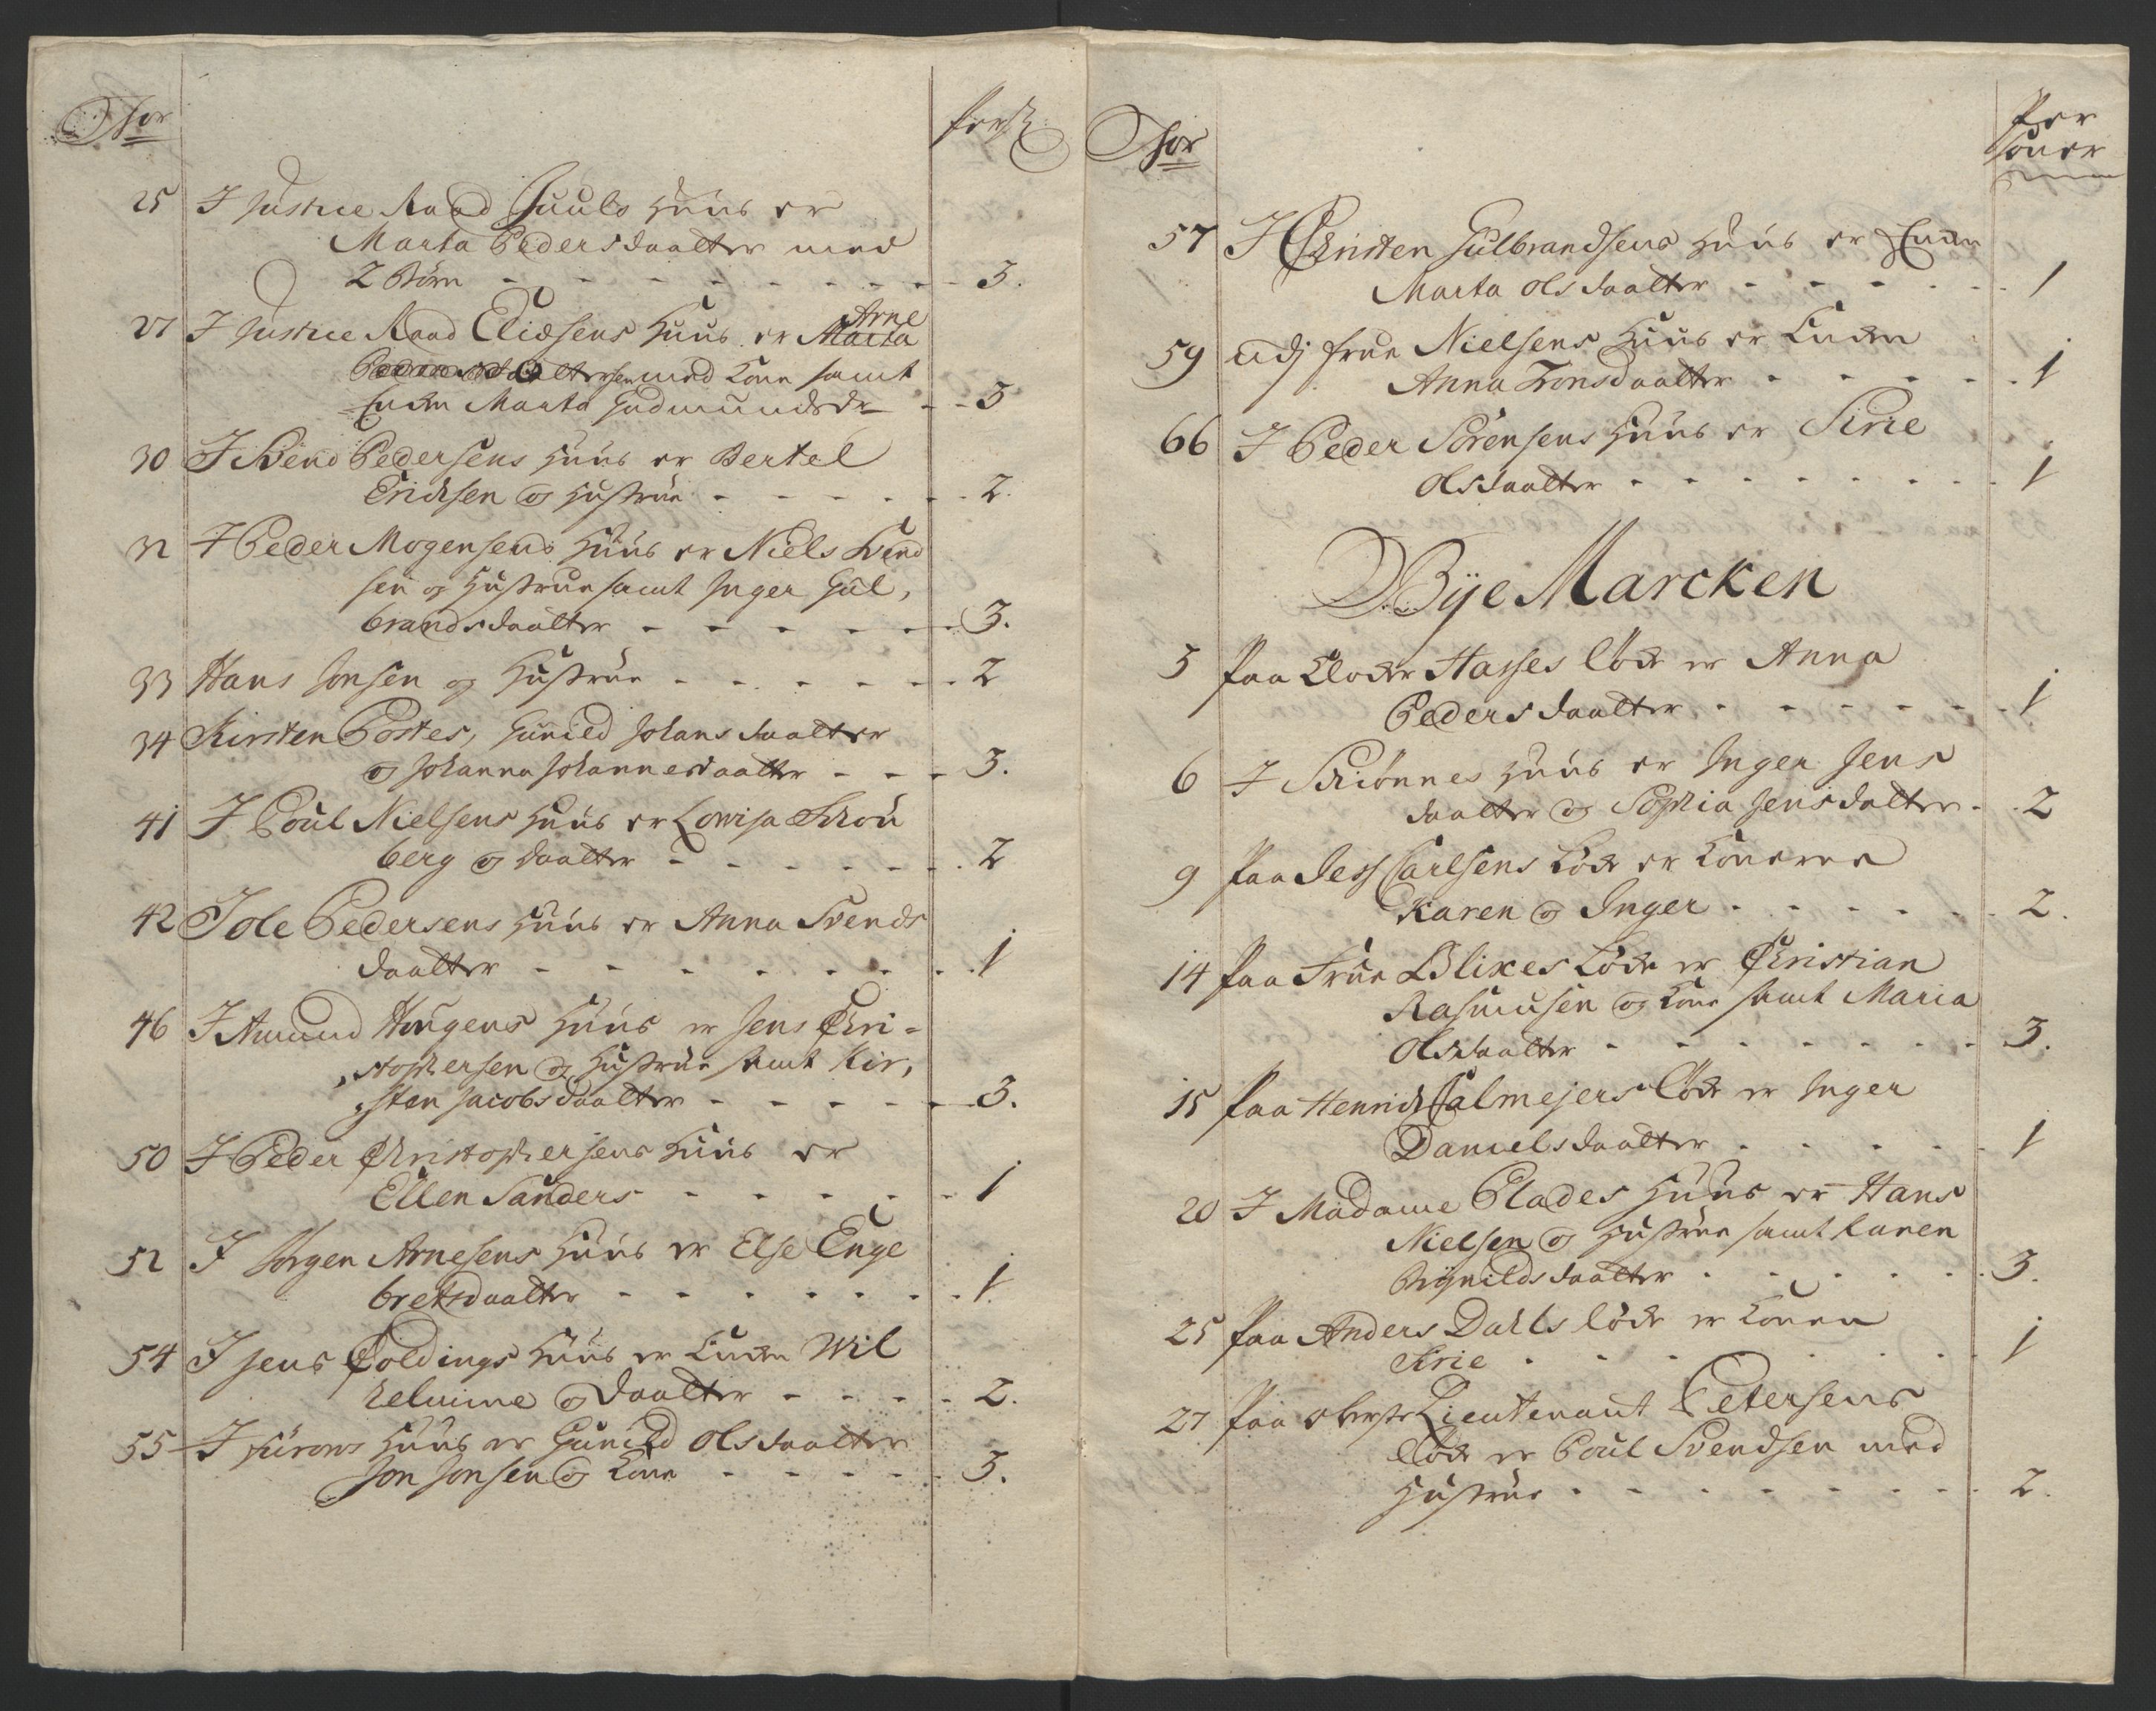 No:
Pers:
25 I Justice Raad Juuls Huus er
Marta Pedersdaatter med
2 Børn - - - - - - - 3.
27 I Justice Raad Eliæsens Huus er Marta Arne
Pedersdaatter sen med Kone samt
Enken Marta Gudmundsdr - - 3
30 I Svend Pedersens Huus er Bertel
Erichsen og Hustrue - - - - - 2.
32 I Peder Mogensens Huus er Niels Svend
sen og Hustrue samt Inger Gul,
brandsdaatter - - - - - - 3.
33 Hans Jonsen og Hustrue - - - - - - 2
34 Kirsten Postes, Gunild Johansdaatter
og Johanna Johannesdaatter - - - 3.
41 I Poul Nielsens Huus er Lovisa Schou
berg og Daatter - - - - - - 2
42 I Ole Pedersens Huus er Anna Svends
daatter - - - - - - - 1
46 I Amund Hougens Huus er Jens Chri-
stophersen og Hustrue samt Kir,
sten Jacobsdaatter - - - - - 3.
50 I Peder Christophersens Huus er
Ellen Sanders - - - - - 1
52 I Jørgen Arnesens Huus er Else Enge
bretsdaatter - - - - - - - 1.
54 I Jens Coldings Huus er Enken Wil
helmine og Daatter - - - - 2.
55 I Fürows Huus er Gunild Olsdaatter
Jon Jonsen og Kone - - - - - 3.
No:
Per
soner
57 I Christen Gulbrandsens Huus er Enken
Marta Olsdaatter - - - - - 1
59 Udj Frue Nielsens Huus er Enken
Anna Tronsdaatter - - - - - 1
66 I Peder Sørensens Huus er Sirie
Olsdaatter - - - - - - - - 1
Bye Marcken
5 Paa Elocker Hasses Løcke er Anna
Pedersdaatter - - - - - - 1
6 I Schiønnes Huus er Inger Jens
daatter og Sophia Jensdatter - 2
9 Paa Jess Carlsens Løcke er Konerne
Karen og Inger - - - - - - 2.
14 Paa Frue Blixes Løcke er Christian
Rasmusen og Kone samt Maria
Olsdaatter - - - - - - - 3.
15 Paa Henrich Calmejers Løcke er Inger
Danielsdaatter - - - - - 1
20 I Madame Plades Huus er Hans
Nielsen og Hustrue samt Karen
Brynildsdaatter - - - - - 3.
25 Paa Anders Dahls Løcke er Konen
Sirie - - - - - - - 1
27 Paa Oberste Lieutenant Petersens
Løcke er Poul Svendsen med
Hustrue - - - - - - - - 2.